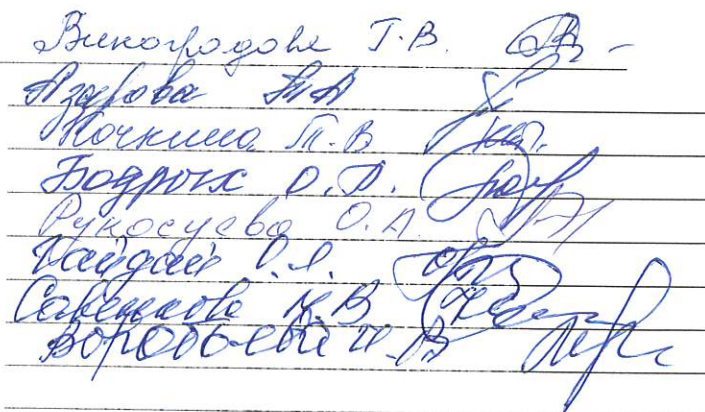 Виноградова Т.В.
Азарова Т.А
Кочкина Т.В
Бодрых О.А.
Рукосуева О.А.
Гайдай О.Я.
Савенкова Н.В
Воробьева И.В